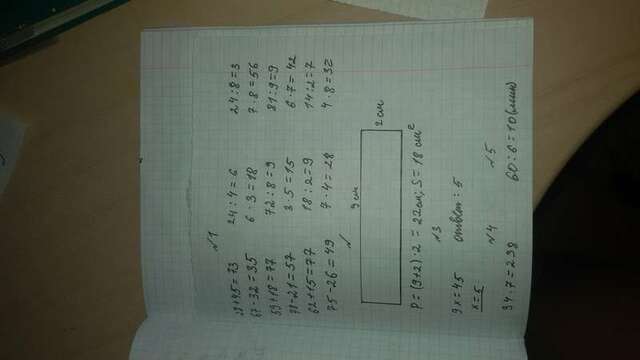 №1
28+45=73 24:4=6 24:8=3
67-32=35 6·3=18 7·8=56
59+18=77 72:8=9 81:9=9
78-21=57 3·5=15 6·7=42
62+15=77 18:2=9 14:2=7
75-26=49 7·4=28 4·8=32
9 см
2 см
P=(9+2)·2=22см; S=18 см²
№3
9x=45 ответ: 5
x=5
№4 №5
34·7=238 60:6=10(мин)